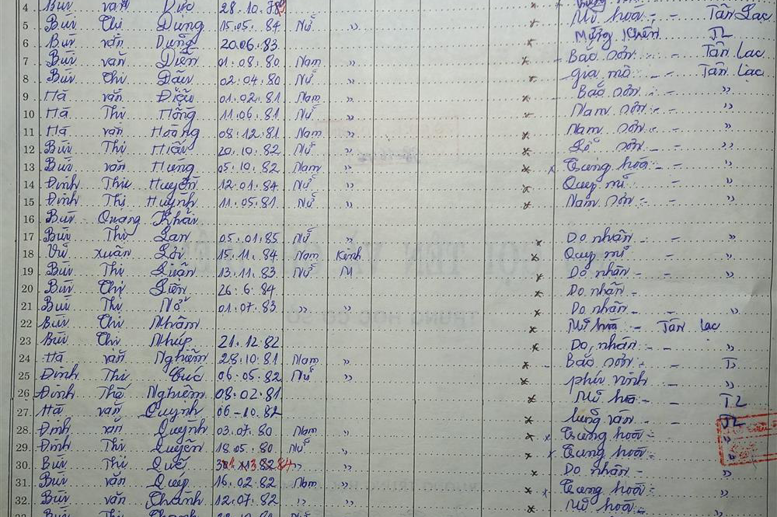 4 Bùi văn Đức 28.10.78
5 Bùi Thị Dung 15.05.84 Nữ " x Mĩ hoà - Tân Lạc
6 Bùi văn Dụng 20.06.83 x TL
7 Bùi văn Diễn 01.08.80 Nam " x Bảo sơn - Tân Lạc
8 Bùi Thị Dậu 02.04.80 Nữ " x gia mô - Tân Lạc
9 Hà văn Điệu 01.02.81 Nam " x Bảo sơn - "
10 Hà Thị Hồng 11.06.81 Nữ " x Nam sơn - "
11 Hà văn Hoàng 08.12.81 Nam " x Nam sơn - "
12 Bùi Thị Hiếu 20.10.82 Nữ " x sơn - "
13 Bùi văn Hưng 05.10.82 Nam " x Trung hoà - "
14 Đinh Thu Huyền 12.01.84 Nữ " x Quy mĩ - "
15 Đinh Thị Huynh 11.05.81 Nữ " x Nam sơn - "
16 Bùi Quang Khải
17 Bùi Thị Lan 05.01.85 Nữ " x Do nhân - "
18 Vũ xuân Lợi 15.11.84 Nam Kinh x Quy mĩ - "
19 Bùi Thị Luận 13.11.83 Nữ M x Do nhân - "
20 Bùi Thị Liên 26.6.84 x Do nhân -
21 Bùi Thị Nở 01.07.83 " " x Do nhân - "
22 Bùi Thị Nhâm x Mĩ hoà - Tân Lạc
23 Bùi Thị Nhíp 21.12.82 x Do nhân - "
24 Hà văn Nghiệm 28.10.81 Nam " x Bảo sơn -
25 Đinh Thị Cúc 06.05.82 Nữ " x phú vinh - "
26 Đinh Thế Nghiêm 08.02.81 x Mĩ hoà - TL
27 Hà văn Quỳnh 06-10.82 x lũng vân - TL
28 Đinh văn Quynh 03.07.80 Nam " x Trung hoà - "
29 Đinh Thị Quyên 18.05.80 Nữ " x Trung hoà - "
30 Bùi Thị Quế " " x Do nhân - "
31 Bùi văn Quy 16.02.82 Nam " x Trung hoà - "
32 Bùi văn Thành 12.07.82 " " x Mĩ hoà - "